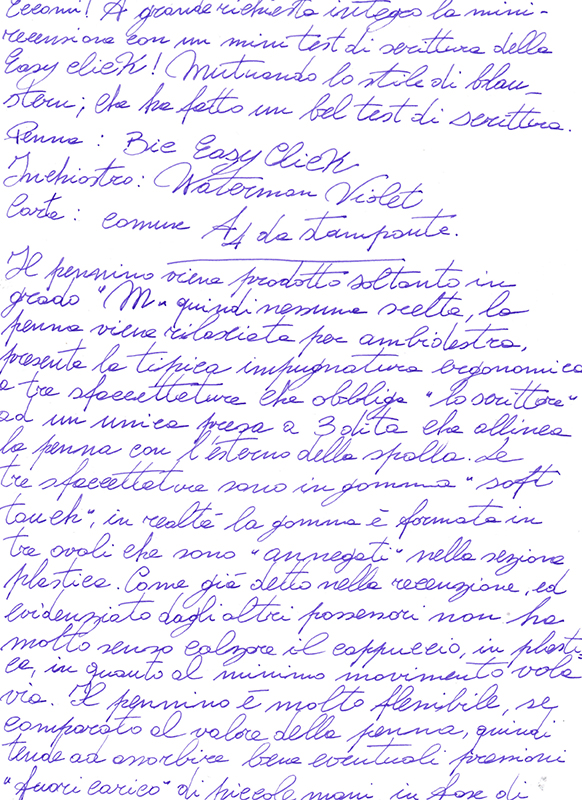 Eccomi! A grande richiesta integro la mini-
recensione con un mini test di scrittura della
Easy click! Mutuando lo stile di blau_
stern; che ha fatto un bel test di scrittura.
Penna: Bic Easy Click
Inchiostro: Waterman Violet
Carta: comune A4 da stampante.
Il pennino viene prodotto soltanto in
grado "M" quindi nessuna scelta, la
penna viene rilasciata per ambidestra,
presenta la tipica impugnatura ergonomica
a tre sfaccettature che obbliga "lo scrittore"
ad un unica presa a 3 dita che allinea
la penna con l'esterno della spalla. Le
tre sfaccettatura sono in gomma "soft
touch", in realtá la gomma é formata in
tre ovali che sono "annegati" nella sezione
plastica. Come giá detto nella recenzione, ed
evidenziato dagli altri possessori non ha
molto senso calzare il cappuccio, in plasti-
ca, in quanto al minimo movimento vola
via. Il pennino é molto flessibile, se
comparato al valore della penna, quindi
tende ad assorbire bene eventuali pressioni
"fuori carico" di piccole mani in fase di